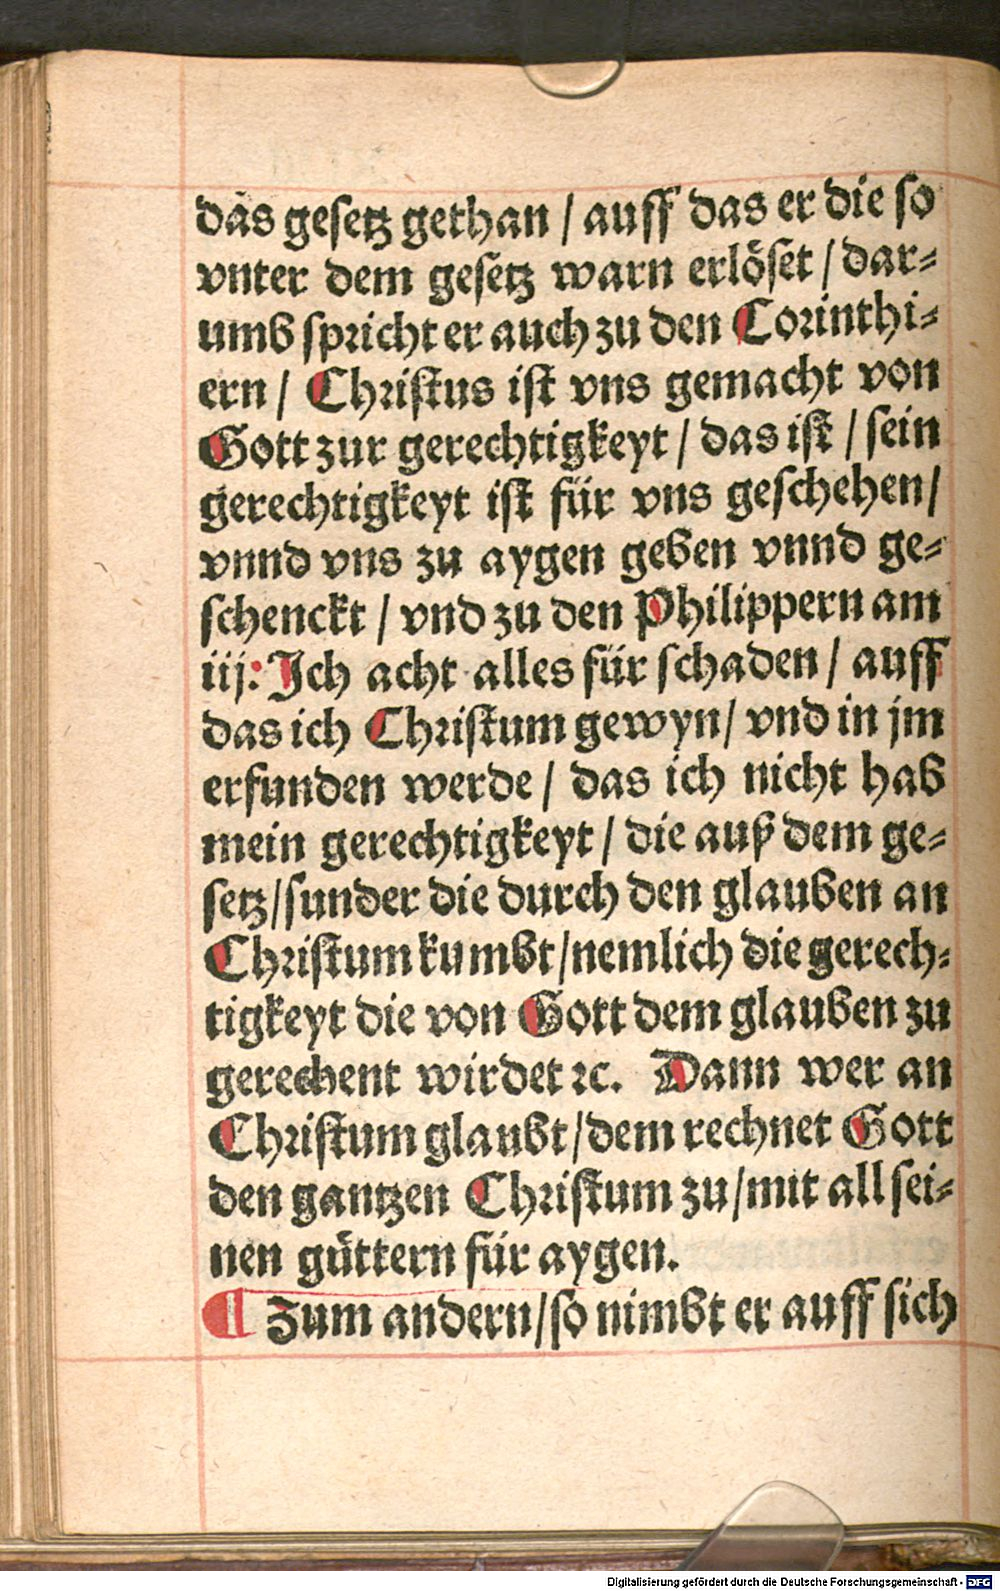 das gesetz gethan / auff das er die so
vnter dem gesetz warn erlöset / dar⸗
umb spricht er auch zu den Corinthi⸗
ern / Christus ist vns gemacht von
Gott zur gerechtigkeyt / das ist / sein
gerechtigkeyt ist für vns geschehen /
vnnd vns zu aygen geben vnnd ge⸗
schenckt / vnd zu den Philippern am
iij: Ich acht alles für schaden / auff
das ich Christum gewyn / vnd in jm
erfunden werde / das ich nicht hab
mein gerechtigkeyt / die auß dem ge⸗
setz / sunder die durch den glauben an
Christum kumbt / nemlich die gerech⸗
tigkeyt die von Gott dem glauben zu
gerechent wirdet ꝛc. Dann wer an
Christum glaubt / dem rechnet Gott
den gantzen Christum zu / mit all sei⸗
nen güttern für aygen.
¶ Zum andern / so nimbt er auff sich
Digitalisierung gefördert durch die Deutsche Forschungsgemeinschaft - DFG